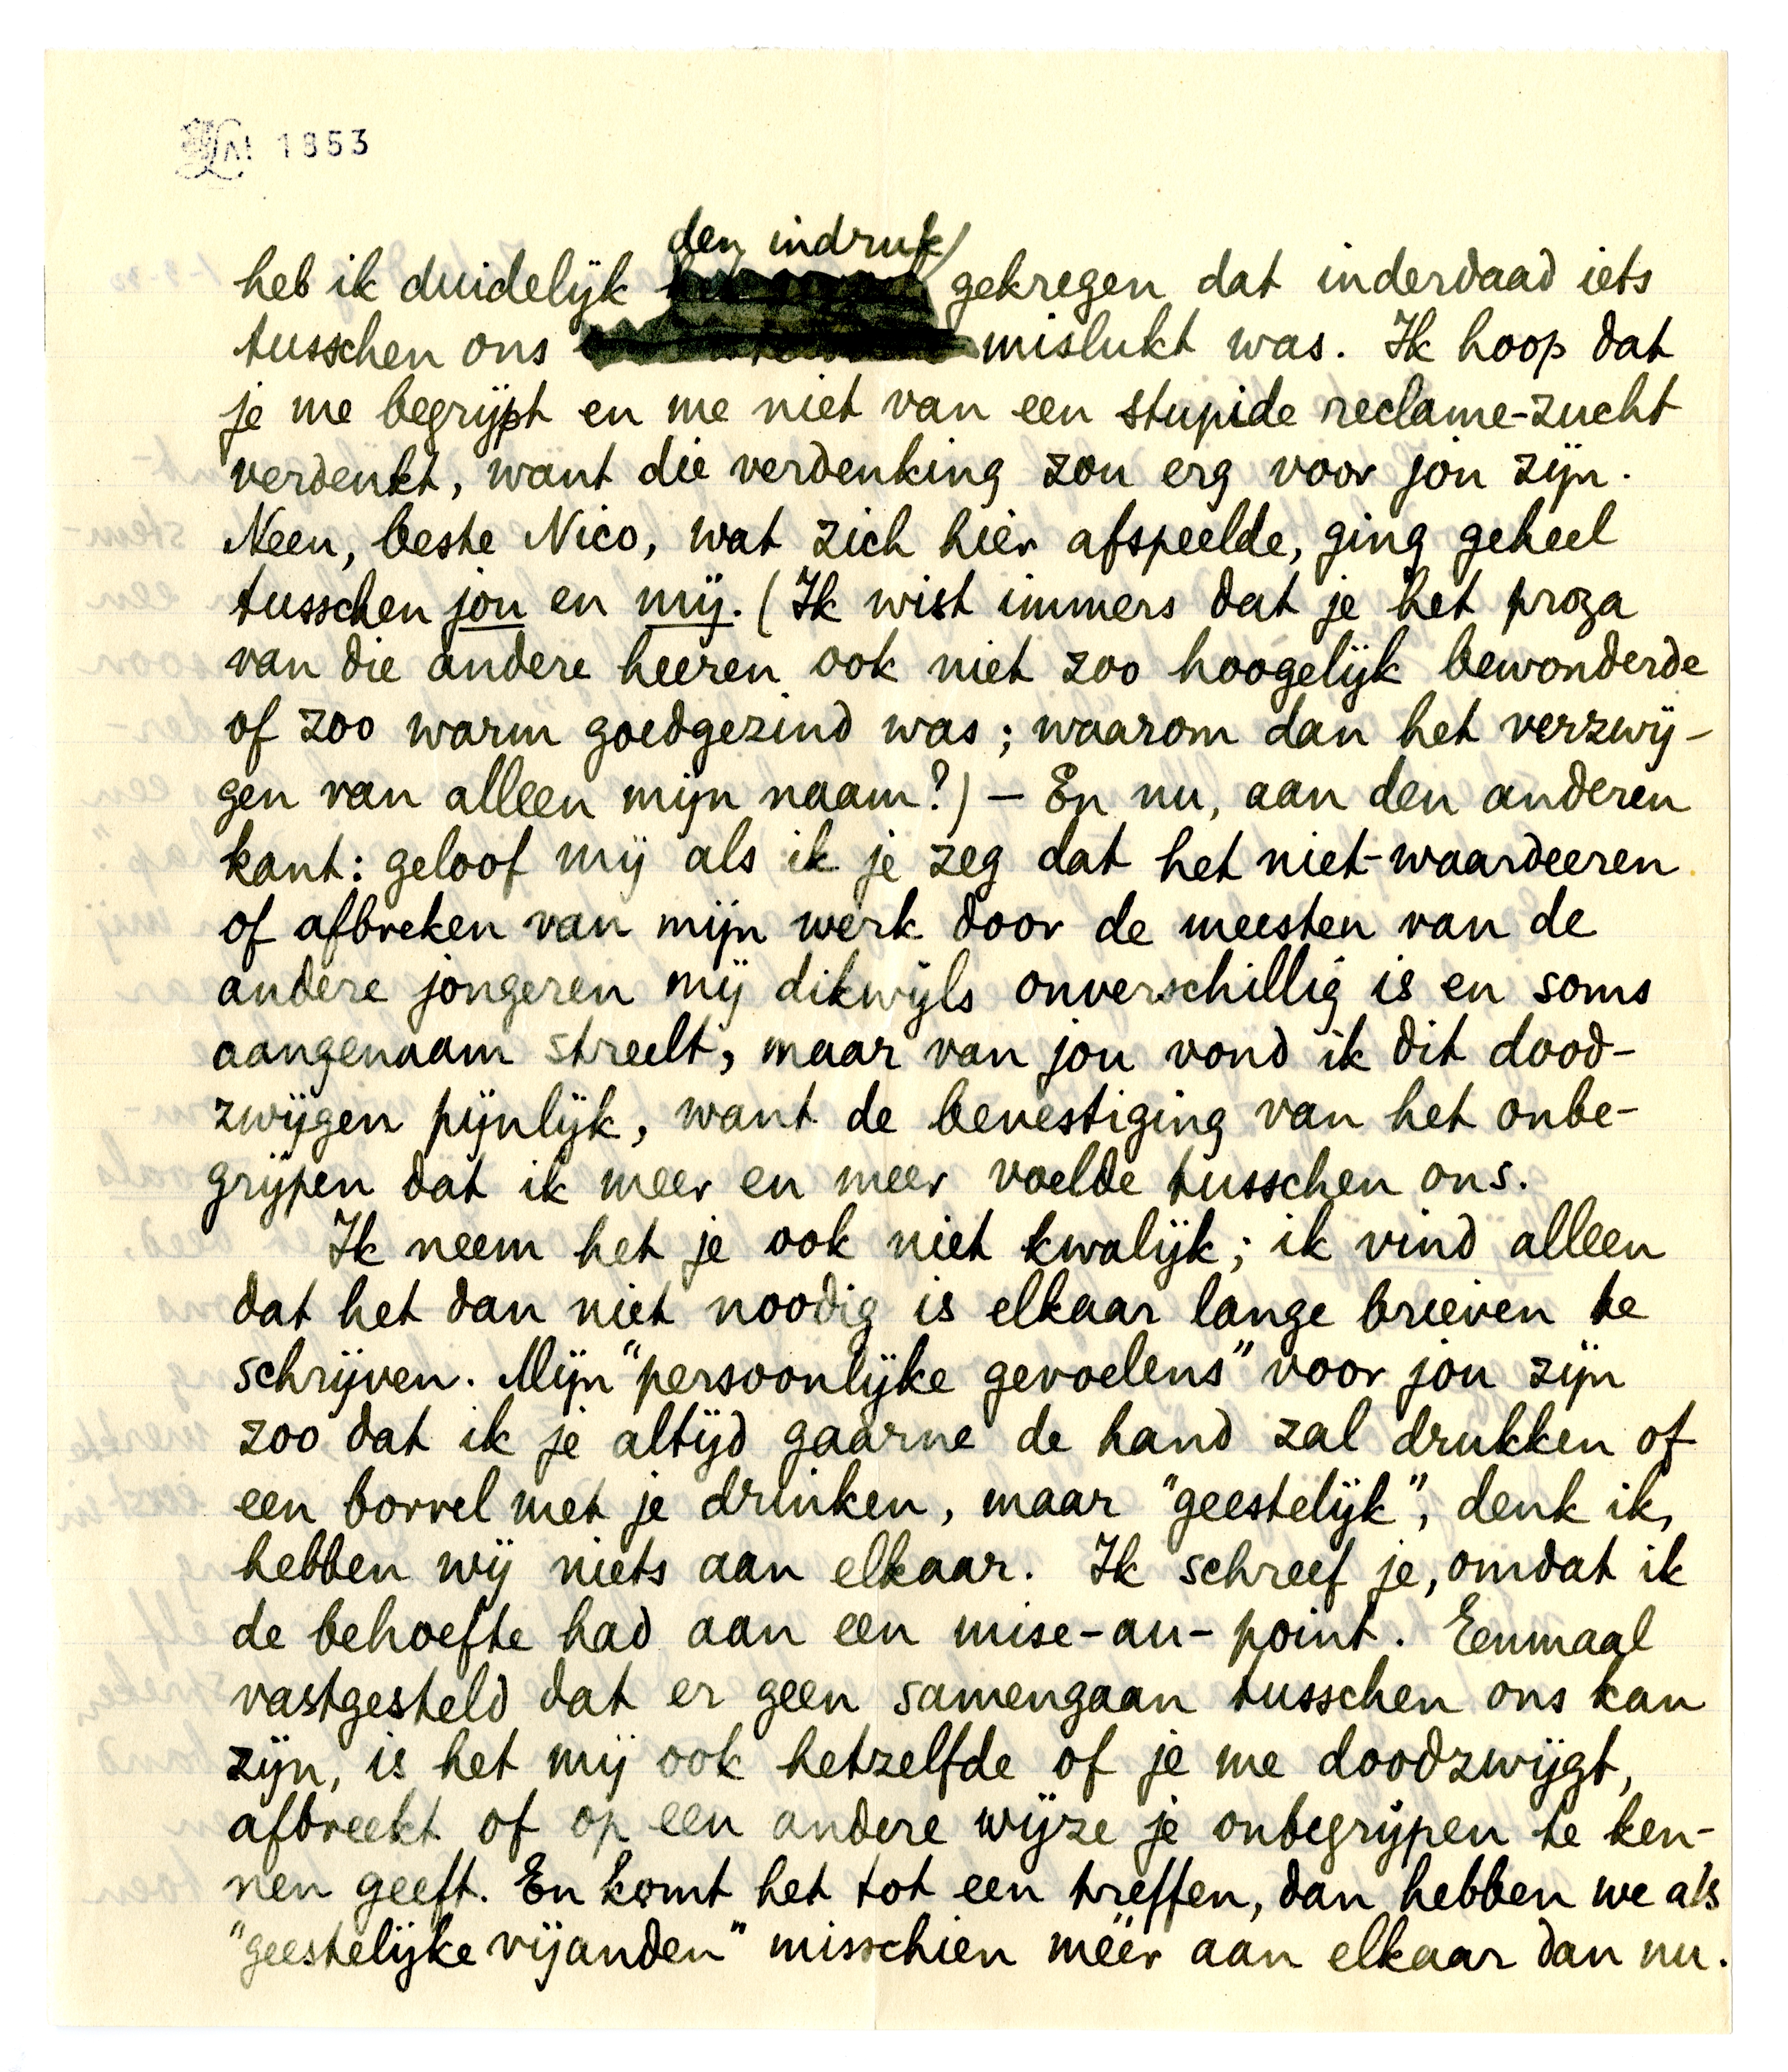 1853
den indruk
heb ik duidelijk gekregen dat inderdaad iets
tusschen ons mislukt was. Ik hoop dat
je me begrijpt en me niet van een stupide reclame-zucht
verdenkt, want die verdenking zou erg voor jou zijn.
Neen, beste Nico, wat zich hier afspeelde, ging geheel
tusschen jou en mij. (Ik wist immers dat je het proza
van die andere heeren ook niet zoo hoogelijk bewonderde
of zoo warm goedgezind was; waarom dan het verzwij-
gen van alleen mijn naam?) – En nu, aan den anderen
kant: geloof mij als ik je zeg dat het niet-waardeeren
of afbreken van mijn werk door de meesten van de
andere jongeren mij dikwijls onverschillig is en soms
aangenaam streelt, maar van jou vond ik dit dood-
zwijgen pijnlijk, want de bevestiging van het onbe-
grijpen dat ik meer en meer voelde tusschen ons.
Ik neem het je ook niet kwalijk; ik vind alleen
dat het dan niet noodig is elkaar lange brieven te
schrijven. Mijn "persoonlijke gevoelens" voor jou zijn
zoo dat ik je altijd gaarne de hand zal drukken of
een borrel met je drinken, maar "geestelijk", denk ik,
hebben wij niets aan elkaar. Ik schreef je, omdat ik
de behoefte had aan een mise-au-point. Eenmaal
vastgesteld dat er geen samengaan tusschen ons kan
zijn, is het mij ook hetzelfde of je me doodzwijgt,
afbreekt of op een andere wijze je onbegrijpen te ken-
nen geeft. En komt het tot een treffen, dan hebben we als
"geestelijke vijanden" misschien méér aan elkaar dan nu.